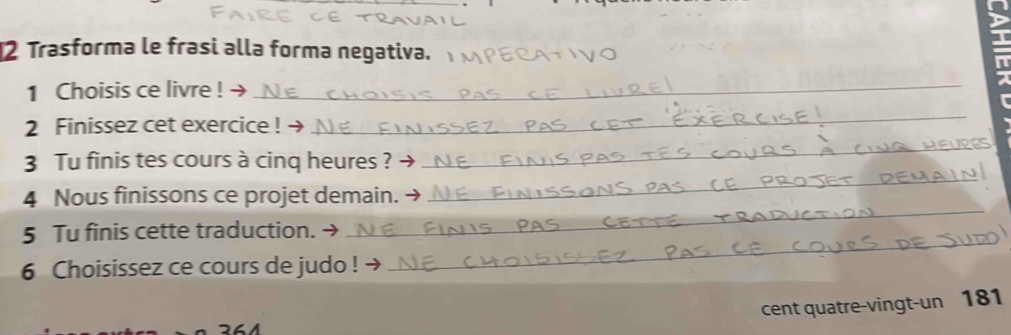 FAIRE CE TRAVAIL
12 Trasforma le frasi alla forma negativa. IMPERATIVO
1 Choisis ce livre ! → NE CHOISIS PAS CE LIVRE!
2 Finissez cet exercice ! → NE FINISSEZ PAS CET EXERCISE!
3 Tu finis tes cours à cinq heures ? → NE FINIS PAS TES COURS À CINQ HEURES
4 Nous finissons ce projet demain. → NE FINISSONS PAS CE PROJET DEMAIN!
5 Tu finis cette traduction. → NE FINIS PAS CETTE TRADUCTION
6 Choisissez ce cours de judo ! → NE CHOISISSEZ PAS CE COURS DE JUDO!
cent quatre-vingt-un 181
364
CAHIER D'A